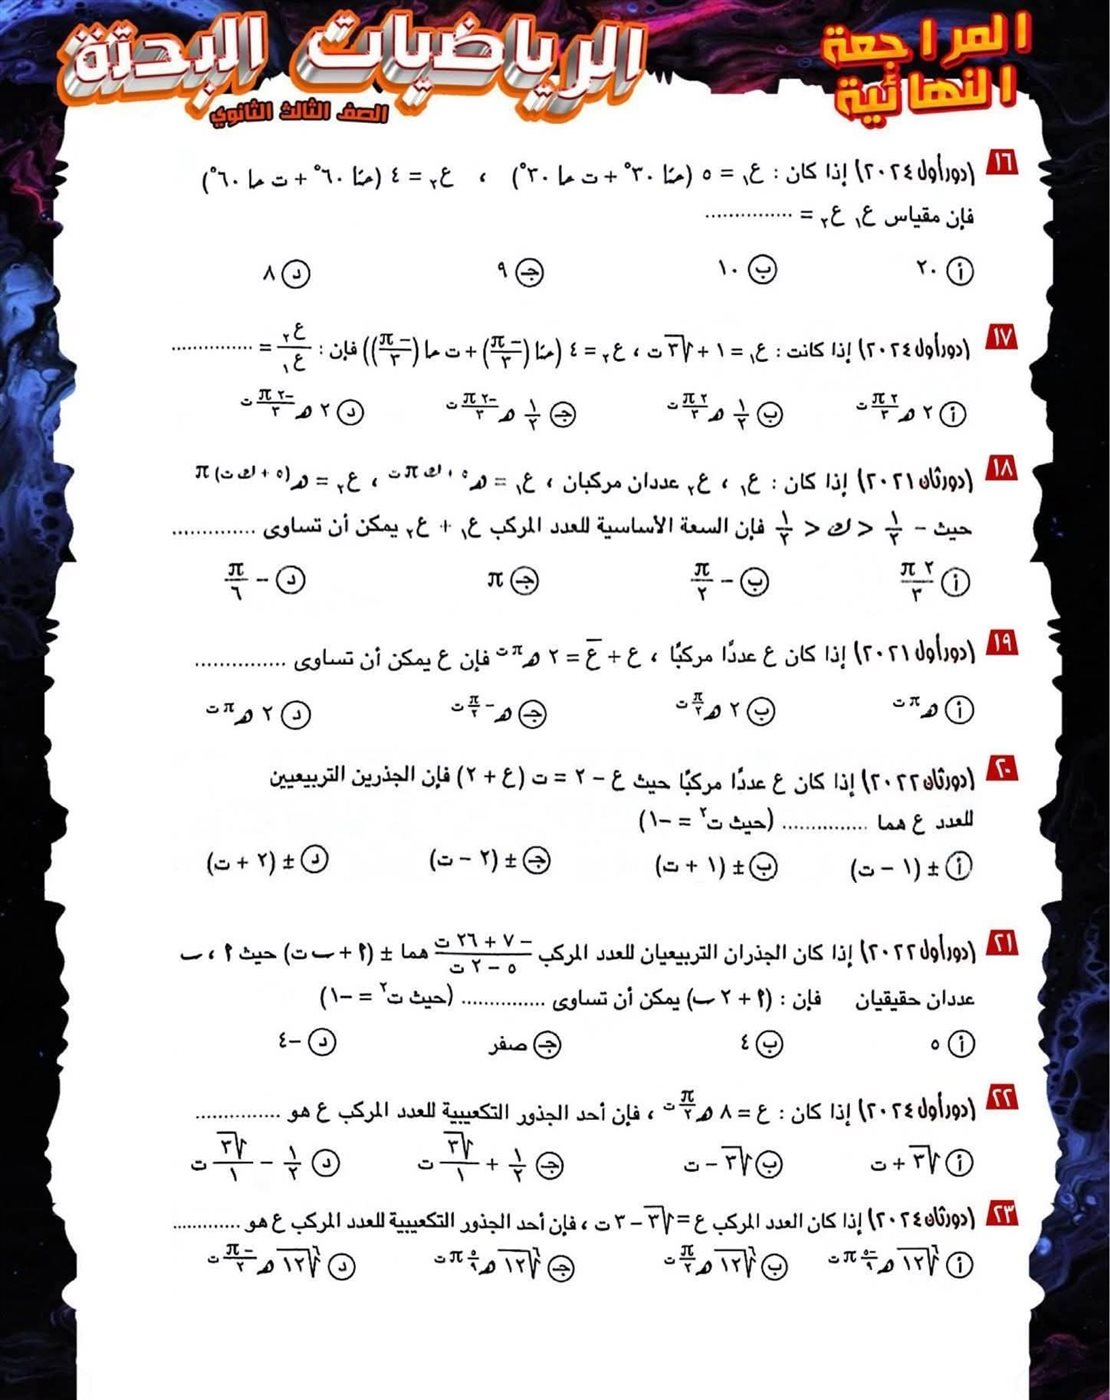 المراجعة النهائية
الرياضيات البحتة
الصف الثالث الثانوي
١٦ (دور أول ٢٠٢٤) إذا كان : ع١ = ٥ (حتا ٣٠° + ت حا ٣٠°) ، ع٢ = ٤ (حتا ٦٠° + ت حا ٦٠°)
فإن مقياس ع١ ع٢ = ...............
أ ٢٠ ب ١٠ ج ٩ د ٨
١٧ (دور أول ٢٠٢٤) إذا كانت : ع١ = ١ + √٣ ت ، ع٢ = ٤ (حتا (-π/٣) + ت حا (-π/٣)) فإن : ع٢/ع١ = ..............
أ ٢ هـ^(٢π/٣ ت) ب ١/٢ هـ^(٢π/٣ ت) ج ١/٢ هـ^(-٢π/٣ ت) د ٢ هـ^(-٢π/٣ ت)
١٨ (دور ثان ٢٠٢١) إذا كان : ع١ ، ع٢ عددان مركبان ، ع١ = هـ^(٥ + ك π ت) ، ع٢ = هـ^((٥ + ك ت) π)
حيث - ١/٢ < ك < ١/٢ فإن السعة الأساسية للعدد المركب ع١ + ع٢ يمكن أن تساوى ..............
أ ٢π/٣ ب - π/٢ ج π د - π/٦
١٩ (دور أول ٢٠٢١) إذا كان ع عددًا مركبًا ، ع + ع̅ = ٢ هـ^(π ت) فإن ع يمكن أن تساوى ...............
أ هـ^(π ت) ب ٢ هـ^(π/٢ ت) ج هـ^(-π/٢ ت) د ٢ هـ^(π ت)
٢٠ (دور ثان ٢٠٢٢) إذا كان ع عددًا مركبًا حيث ع - ٢ = ت (ع + ٢) فإن الجذرين التربيعيين
للعدد ع هما .............. (حيث ت٢ = -١)
أ ± (١ - ت) ب ± (١ + ت) ج ± (٢ - ت) د ± (٢ + ت)
٢١ (دور أول ٢٠٢٢) إذا كان الجذران التربيعيان للعدد المركب (-٧ + ٢٦ ت)/(٥ - ٢ ت) هما ± (٢ + ب ت) حيث ٢ ، ب
عددان حقيقيان فإن : (٢ + ٢ ب) يمكن أن تساوى .............. (حيث ت٢ = -١)
أ ٥ ب ٤ ج صفر د -٤
٢٢ (دور أول ٢٠٢٤) إذا كان : ع = ٨ هـ^(π/٢ ت) ، فإن أحد الجذور التكعيبية للعدد المركب ع هو ..............
أ √٣ + ت ب √٣ - ت ج ١/٢ + √٣/١ ت د ١/٢ - √٣/١ ت
٢٣ (دور ثان ٢٠٢٤) إذا كان العدد المركب ع = √٣ - ٣ ت ، فإن أحد الجذور التكعيبية للعدد المركب ع هو ............
أ ⁶√١٢ هـ^(-٥/٩ π ت) ب ⁶√١٢ هـ^(π/٢ ت) ج ⁶√١٢ هـ^(٥/٩ π ت) د ⁶√١٢ هـ^(-π/٢ ت)